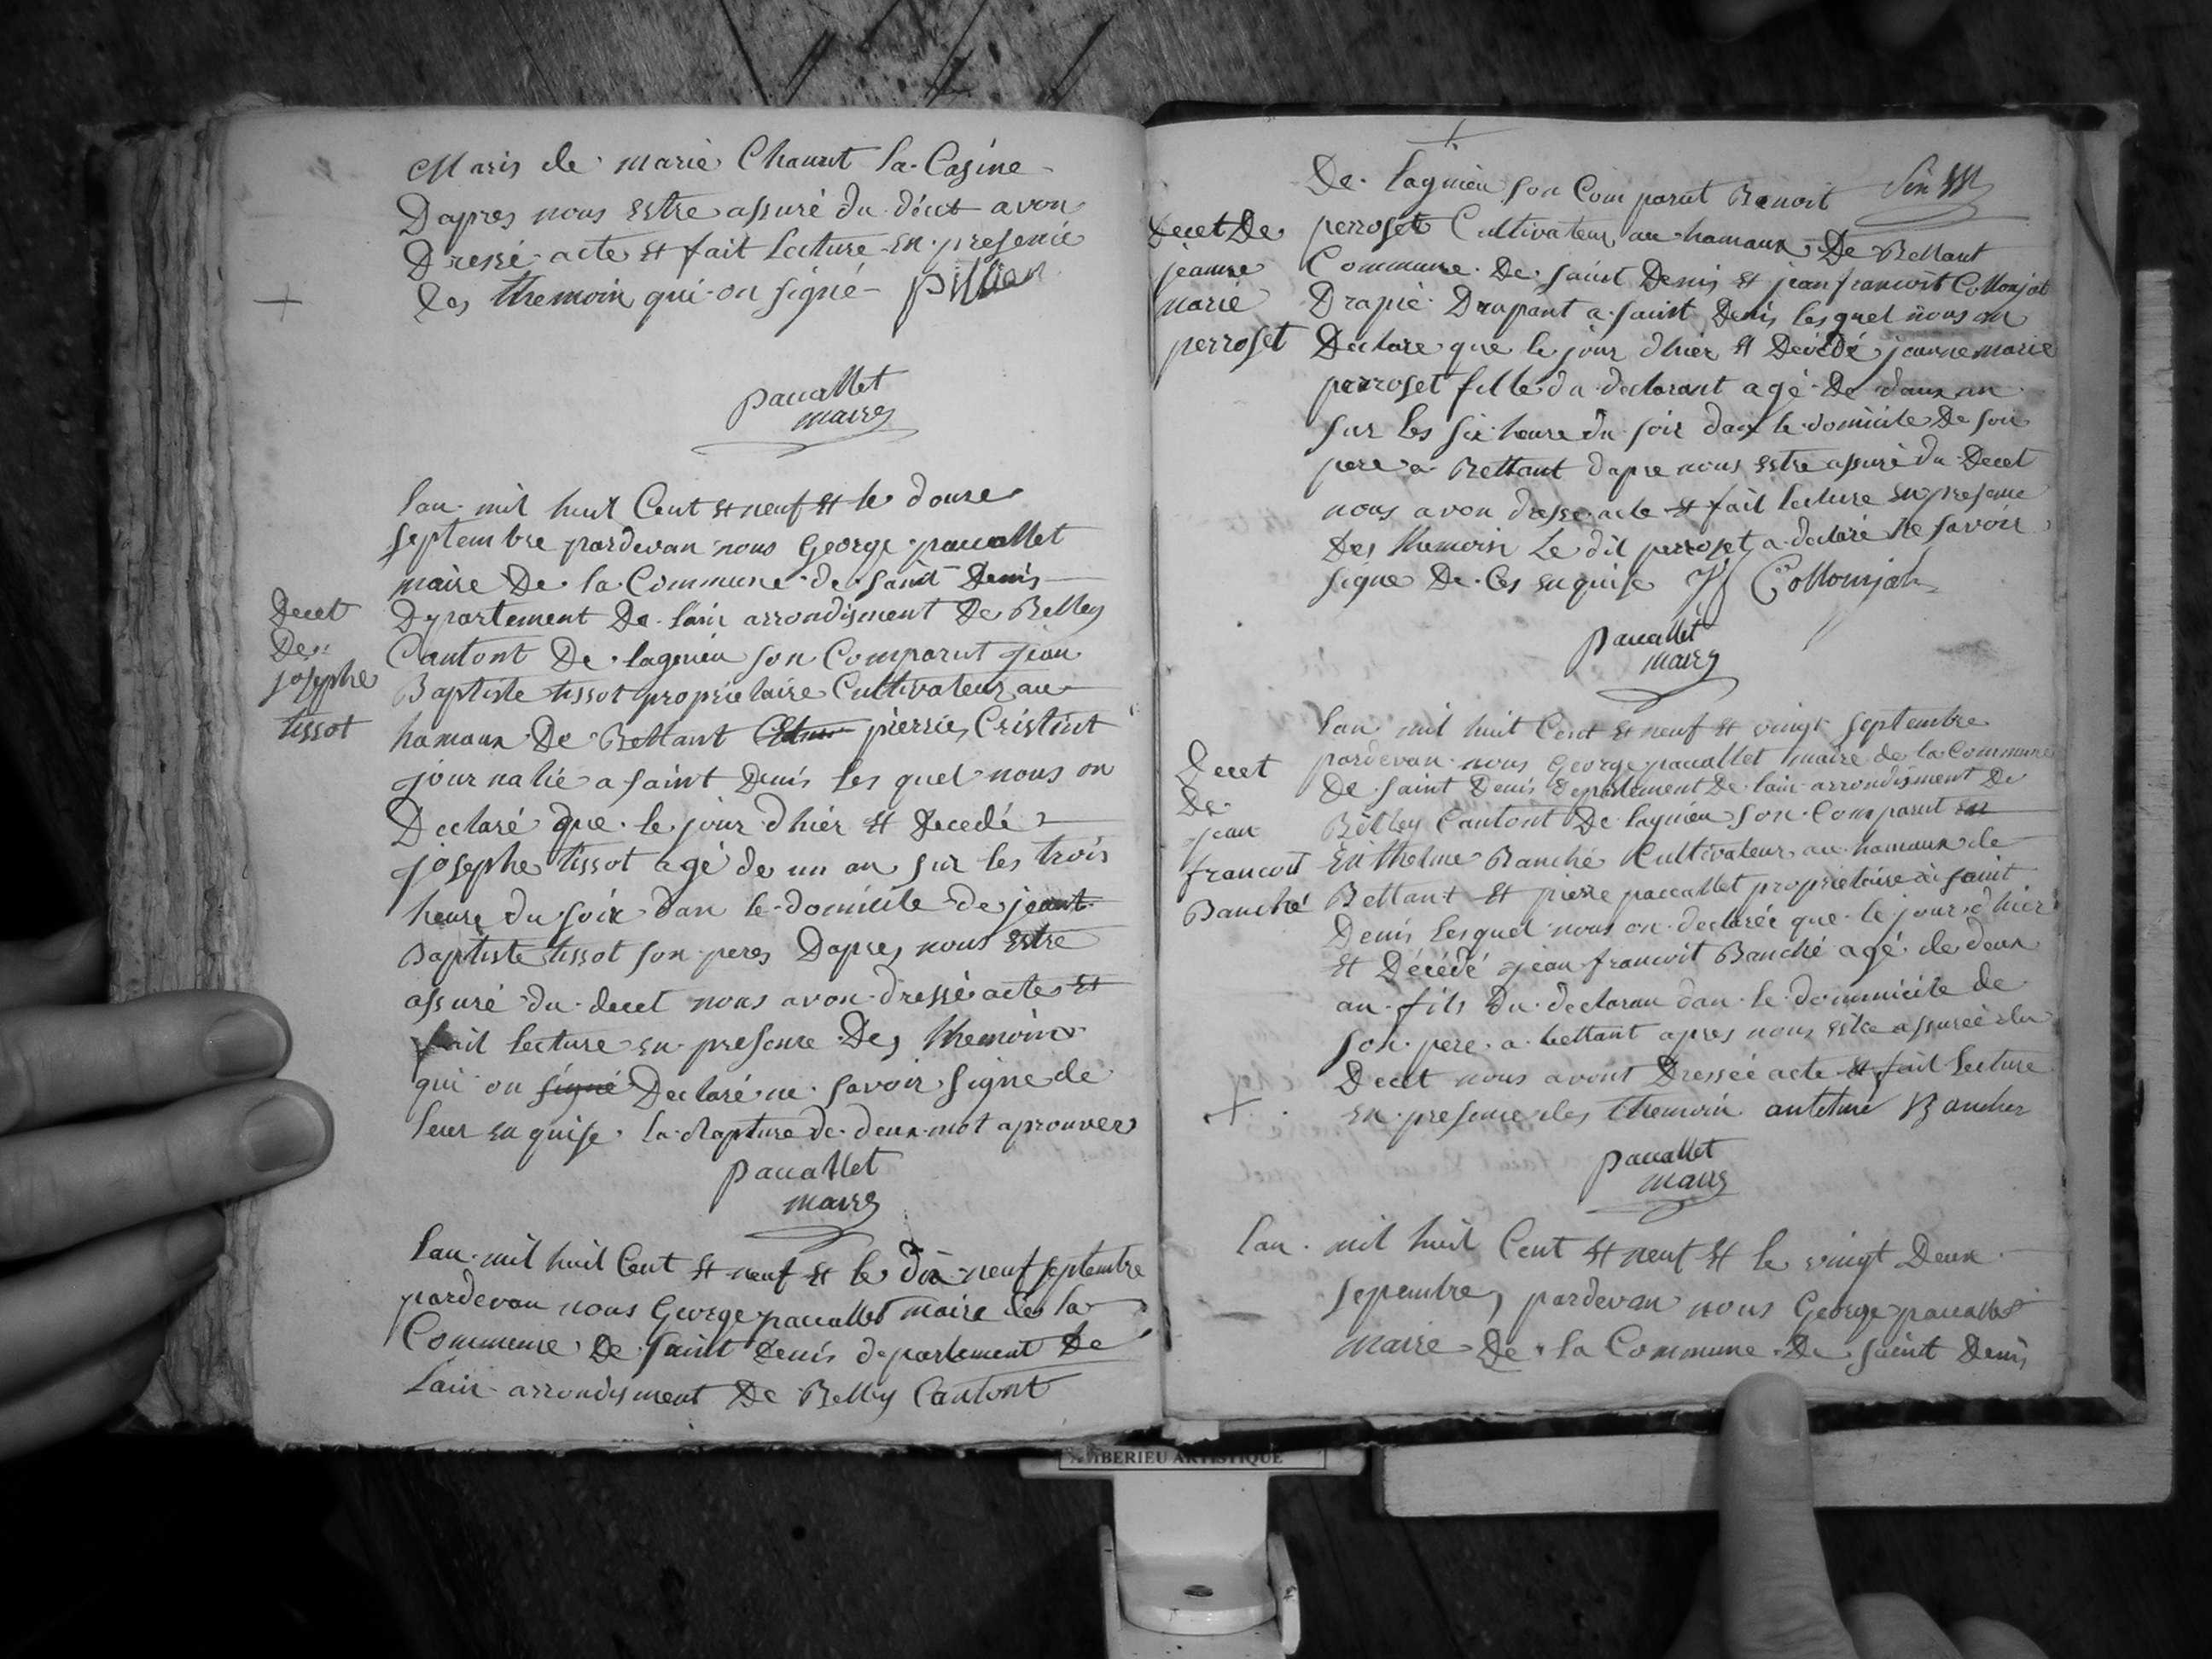 Maris de marie Chanut la Casine
Dapres nous estre assuré du décet avon
Dressé acte et fait lecture en presence
des themoin qui on signé
pauallet
maire
lan mil huit Cent et neuf et le douse
septembre pardevan nous George pauallet
maire De la Commune de saint Denis
Departement De lain arrondisment De Belley
Decet
De
josephe
tissot
Cantont De lagnieu son Comparut jean
Baptiste tissot proprietaire Cultivateur au
hamaux De Bettant pierre Cristint
journalié a saint Denis les quel nous on
Declaré que le jour dhier et Decedé
josephe tissot agé de un an sur les trois
heure du soir dan le domicile de jeant
Baptiste tissot son peres Dapres nous estre
assuré du decet nous avon dressé acte et
fait lecture en presence Des themoins
qui on signé Declaré ne savoir signe de
leur enquise la rapture de deux mot aprouver
pauallet
maire
lan mil huit Cent et neuf et le dix neuf septembre
pardevan nous George pauallet maire de la
Commune De saint Denis departement De
lain arrondisment De Belley Cantont
De lagnieu son Comparut Benoit
Decet De
jeanne
marie
perroset
perroset Cultivateur au hamaux De Bettant
Commune De saint Denis et jean francoit Collonjat
Drapié Drapant a saint Denis lesquel nous on
Declare que le jour dhier et Décédé jeanne marie
perroset fille du declarant agé De deux an
sur les six heure du soir dan le domicile De son
pere a Bettant dapre nous estre assuré du Decet
nous avon dresse acte et fait lecture en presence
Des themoin Le dit perroset a declaré ne savoir
signe De Ces enquise Jf Collonjat
pauallet
maire
lan mil huit Cent et neuf et vingt septembre
pardevan nous George pauallet maire de la Commune
De saint Denis Departement De lain arrondisment De
Decet
De
jean
francoit
Banché
Belley Cantont De lagnieu son Comparut en
Enthelme Banché Cultivateur au hamaux de
Bettant et pierre pauallet proprietaire a saint
Denis lesquel nous on declarée que le jour dhier
et Décédé jean francoit Banché agé de deux
an fils du declaran dan le dommicile de
son pere a bettant apres nous estre assurée du
Decet nous avont Dressée acte et fait lecture
en presence des themoin antelme Bancher
pauallet
maire
lan mil huit Cent et neuf et le vingt Deux
sepembre pardevan nous George pauallet
maire De la Commune De saint Denis